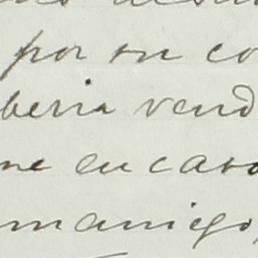 por su co
beria vend
me en caso
maniego,